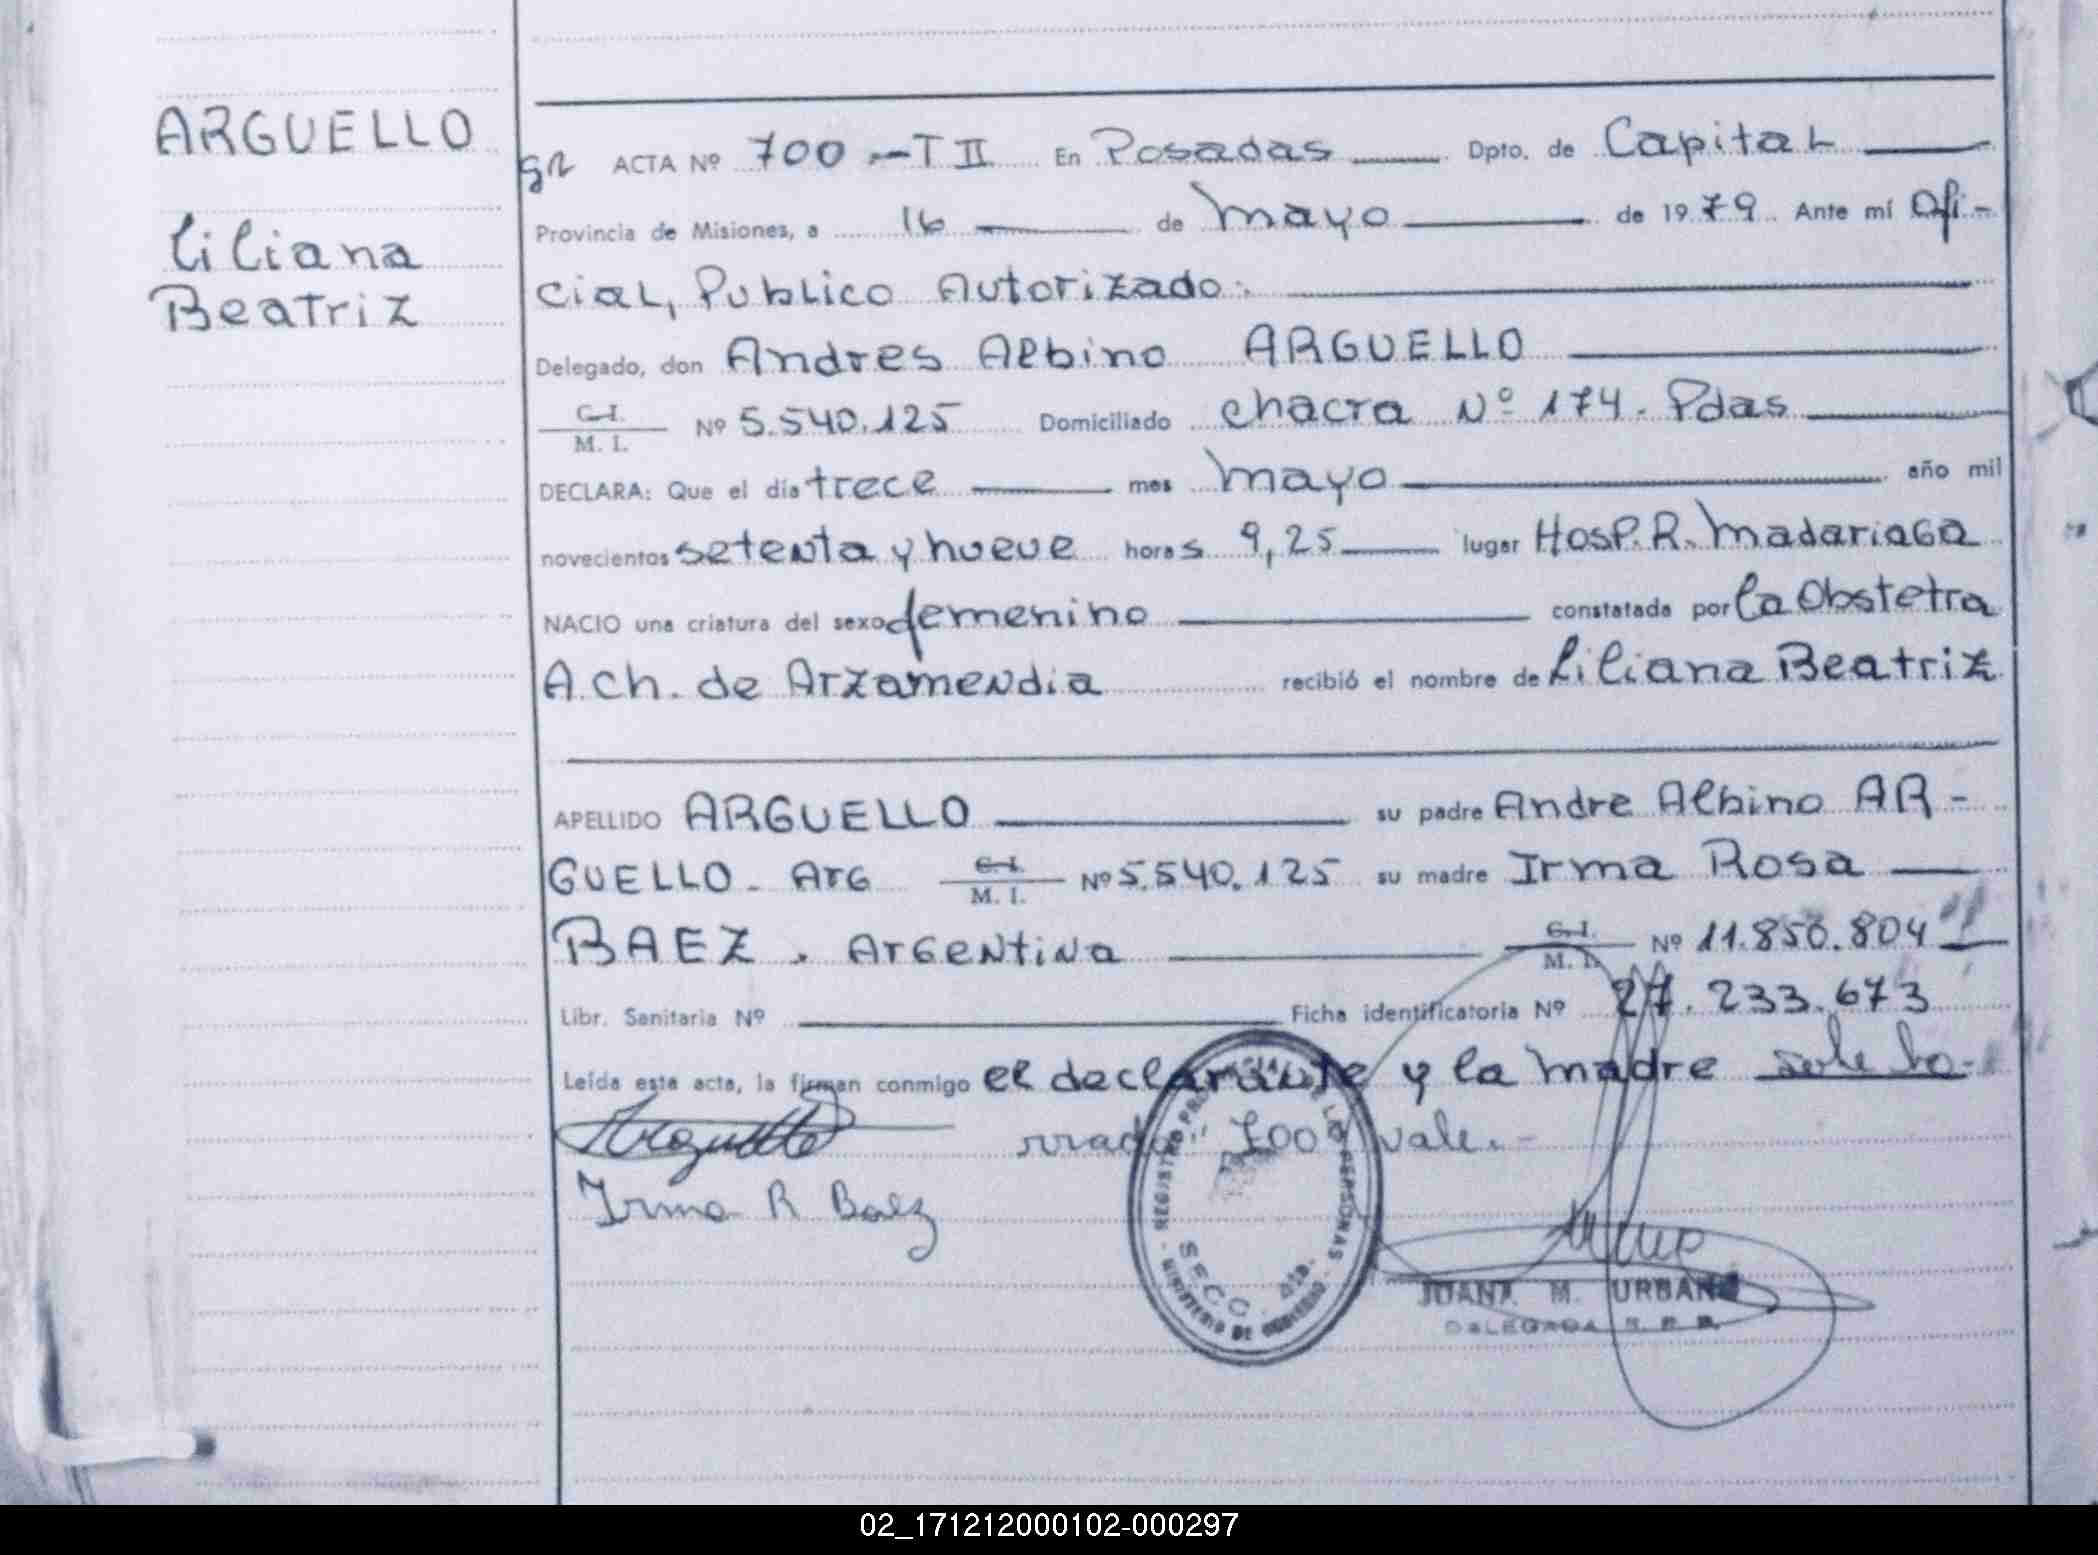 ARGUELLO
Liliana
Beatriz
ACTA Nº 700.-T II En Posadas Dpto. de Capital
Provincia de Misiones, a 16 de mayo de 1979. Ante mí Ofi-
cial, Publico Autorizado.
Delegado, don Andres Albino ARGUELLO
C.I.
M. I. Nº 5.540.125 Domiciliado chacra Nº 174. Pdas
DECLARA: Que el día trece mes mayo año mil
novecientos setenta y nueve horas 9,25 lugar Hosp. R. Madariaga
NACIO una criatura del sexo femenino constatada por la Obstetra
A. Ch. de Arzamendia recibió el nombre de Liliana Beatriz
APELLIDO ARGUELLO su padre Andre Albino AR-
GUELLO - Arg C.I. M. I. Nº 5.540.125 su madre Irma Rosa
BAEZ. Argentina C.I. M. I. Nº 11.850.804
Libr. Sanitaria Nº Ficha identificatoria Nº 27.233.673
Leída esta acta, la firman conmigo el declarante y la madre sole bo-
rrado "700" vale.-
Arguello
Irma R Baez
REGISTRO PROVINCIAL DE LAS PERSONAS
MINISTERIO DE GOBIERNO
SECC. 4ta.
JUANA M. URBANO
DELEGADA
02_171212000102-000297